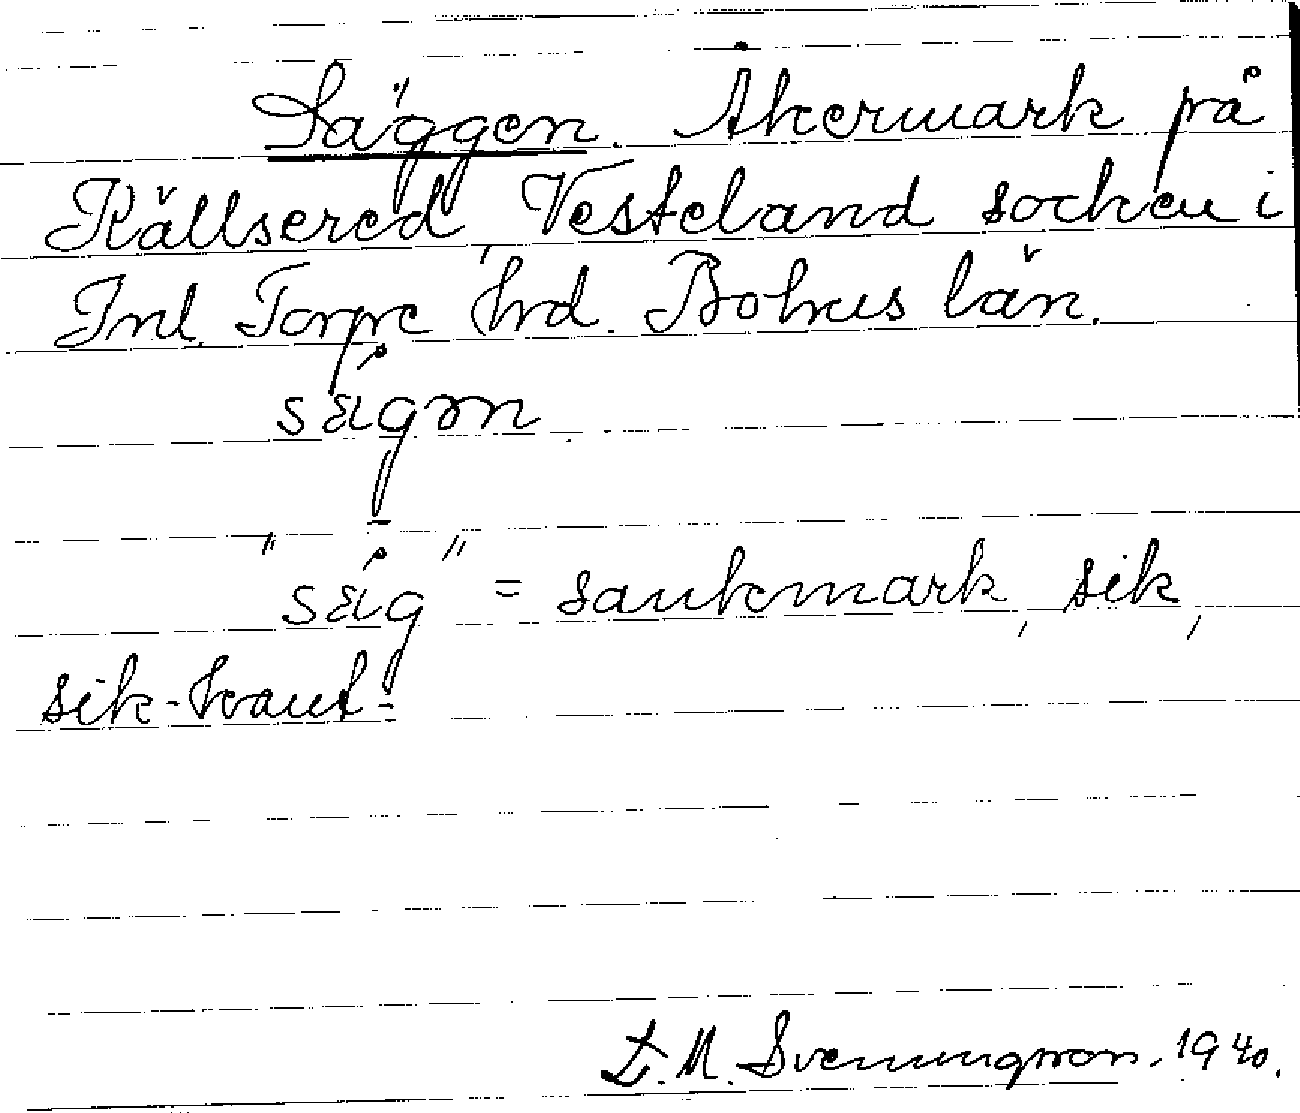 Säggen. Åkermark på
Källsered, Vesteland socken i
Inl. Torpe hrd. Bohus län.
sägən
"säg" = sankmark, sik,
sik-kant-
D. M. Svenungsson. 1940.